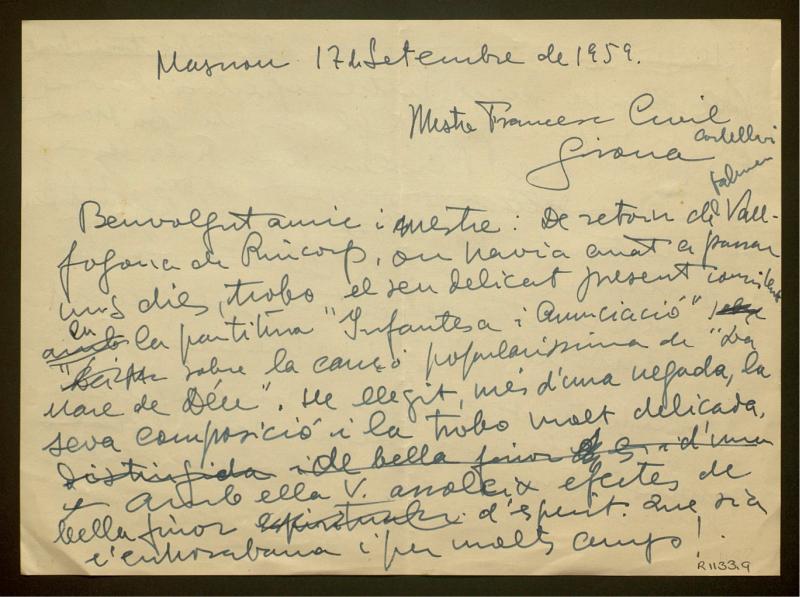 Masnou 17 de Setembre de 1959.
Mestre Francesc Civil
Castellví
Girona
Benvolgut amic i mestre: De retorn de Vall-
fogona de Riucorp, on havia anat a passar
uns dies, trobo el seu delicat present consistent
en
amb la partitura "Infantesa i Anunciació"
sobre la cançó popularíssima de "La
Mare de Déu". He llegit, més d'una vegada, la
seva composició i la trobo molt delicada,
distingida i de bella finor i d'una
Amb ella V. assoleix efectes de
bella finor espiritual d'esperit. Que sia
l'enhorabona i per molts anys!
R.1133.9